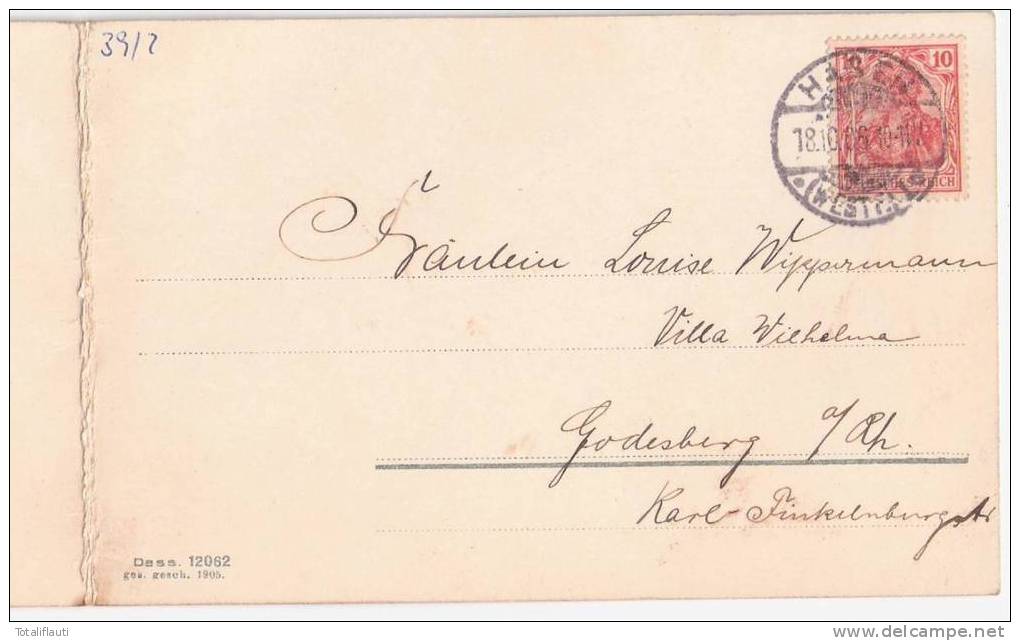 39/2
10
HAGEN
18.10.05.10-11V
(WESTF.)
DEUTSCHES REICH
Fräulein Louise Wippermann
Villa Wilhelma
Godesberg a/Rh.
Karl-Finkelnburgstr
Dess. 12062
ges. gesch. 1905.
Totaliflauti
delcampe.net